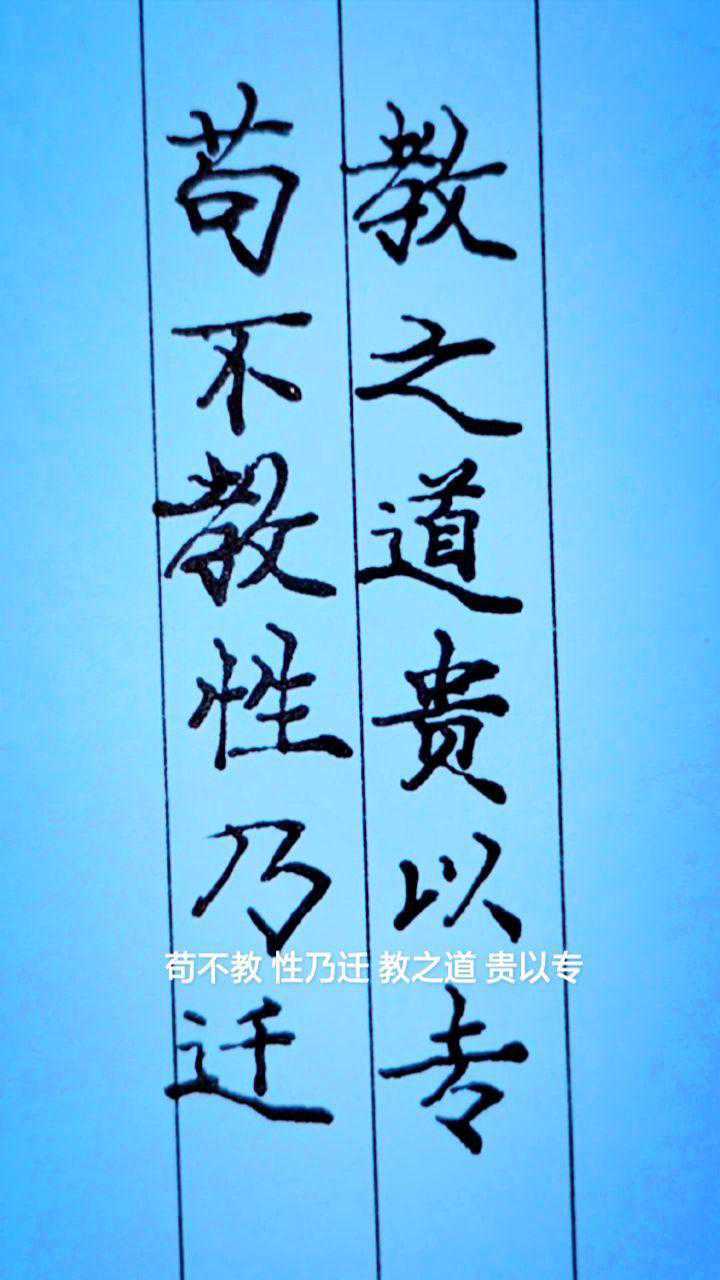 苟不教性乃迁
教之道贵以专
苟不教 性乃迁 教之道 贵以专